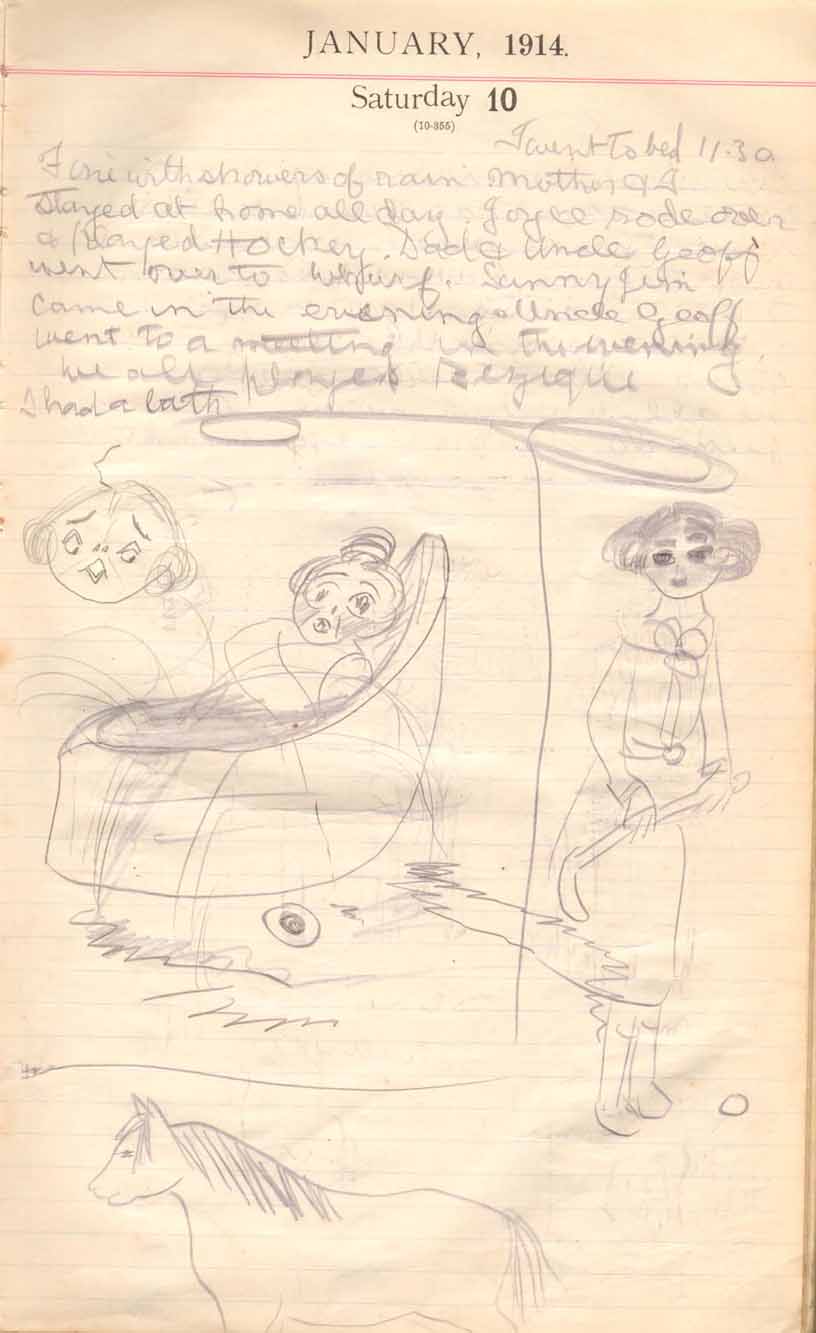 JANUARY, 1914.
Saturday 10
(10-355)
I went to bed 11.30
Fine with showers of rain Mother & I
Stayed at home all day. Joyce rode over
& played Hockey. Dad & Uncle Geoff
went over to wharf. Sunny Jim
came in the evening & Uncle Geoff
went to a meeting in the evening.
we all played Bezique
I had a bath